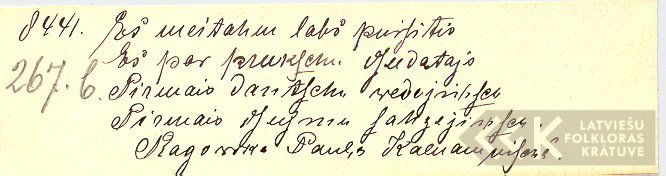 8441. Es meitahm labs puisitis
267. b. Es par pruhschu dsedatajs
Pirmais dantschu wedejinsch
Pirmais dseesmu sahzejinsch.
Ragowska Pauls Kalnampischs.
LATVIEŠU
FOLKLORAS
KRĀTUVE